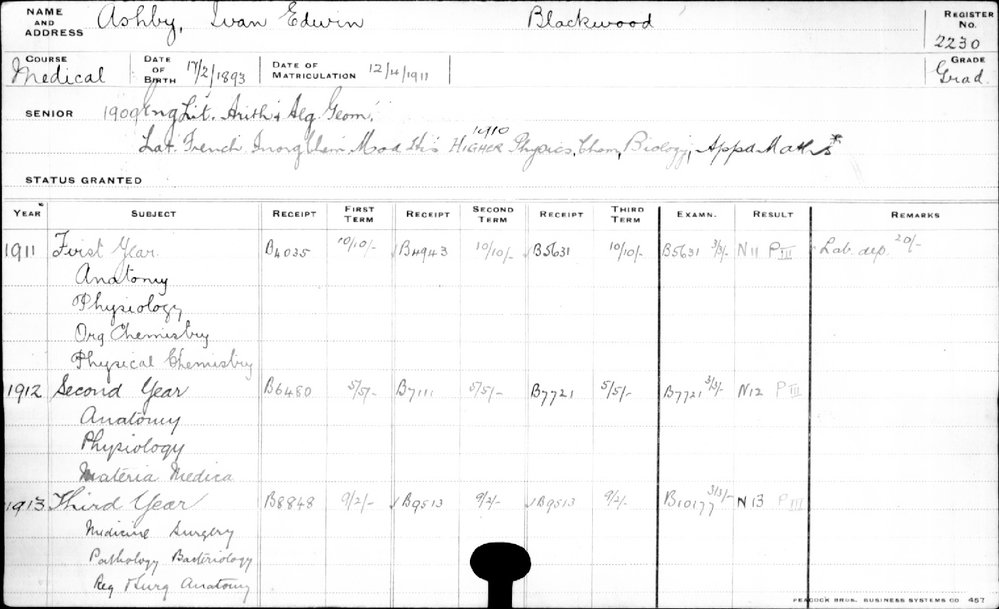 NAME AND ADDRESS Ashby, Ivan Edwin Blackwood REGISTER No. 2230
COURSE Medical DATE OF BIRTH 17/2/1893 DATE OF MATRICULATION 12/4/1911 GRADE Grad.
SENIOR 1909 Eng Lit. Arith & Alg Geom.
1910
Lat. French Inorg Chem Mod His HIGHER Physics, Chem, Biology, Appd Maths*
STATUS GRANTED
YEAR SUBJECT RECEIPT FIRST TERM RECEIPT SECOND TERM RECEIPT THIRD TERM EXAMN. RESULT REMARKS
1911 First Year B4035 10/10/- B4943 10/10/- B5631 10/10/- B5631 3/3/- N11 P III Lab. dep. 20/-
Anatomy
Physiology
Org Chemistry
Physical Chemistry
1912 Second Year B6480 5/5/- B7111 5/5/- B7721 5/5/- B7721 3/3/- N12 P III
Anatomy
Physiology
Materia Medica
1913 Third Year B8848 9/2/- B9513 9/2/- B9513 9/2/- B10177 3/3/- N13 P III
Medicine Surgery
Pathology Bacteriology
Reg & Surg Anatomy
PEACOCK BROS. BUSINESS SYSTEMS CO 457